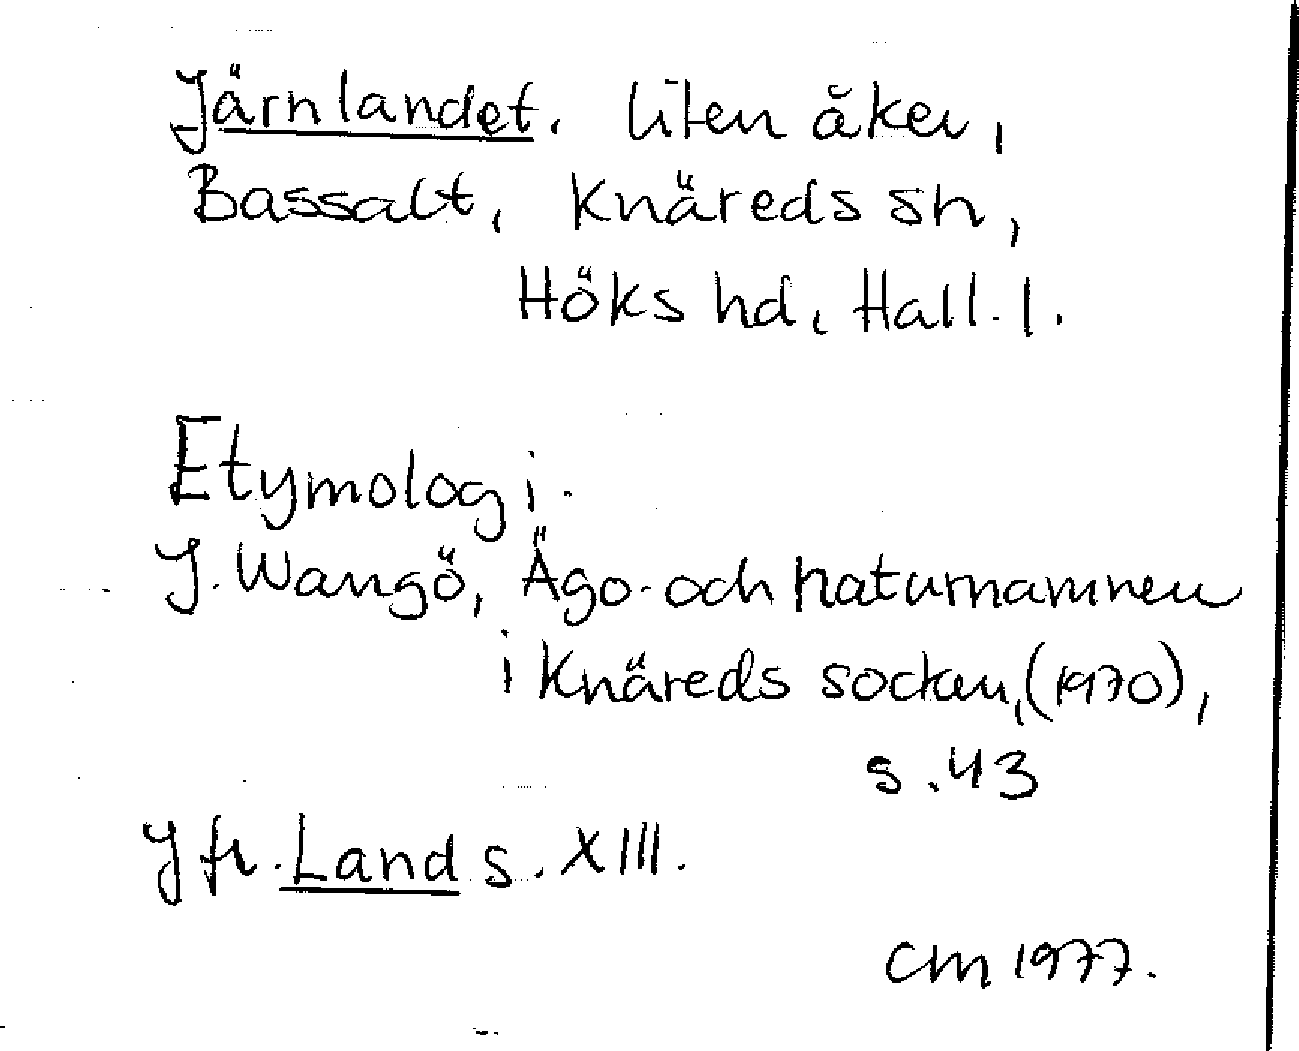 Järnlandet. liten åker,
Bassalt, Knäreds sn,
Höks hd, Hall. l.
Etymologi.
J. Wangö, Ägo- och naturnamnen
i Knäreds socken, (1970),
s. 43
Jfr. Land s. XIII.
CM 1977.